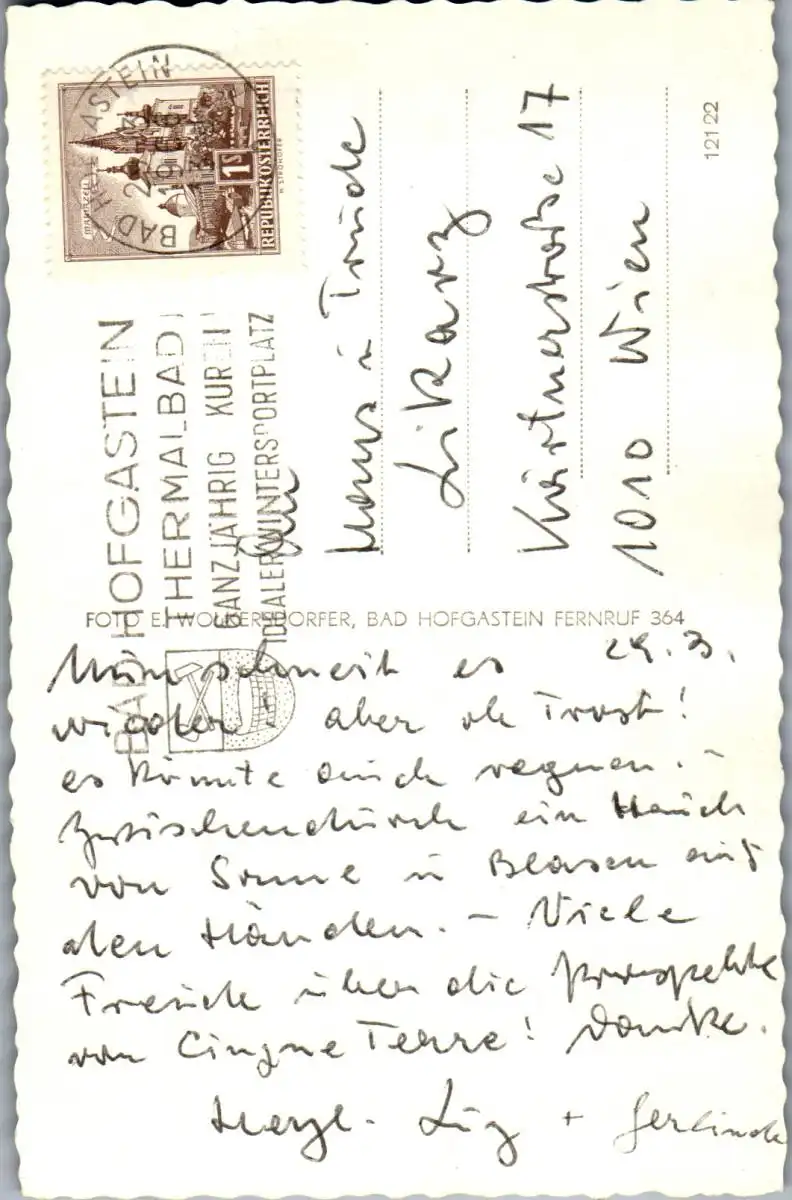 BAD HOFGASTEIN
REPUBLIK ÖSTERREICH
1S
BAD HOFGASTEIN
THERMALBAD
GANZJÄHRIG KUREN
IDEALER WINTERSPORTPLATZ
An
Hans u Trude
Likarz
Kärtnerstraße 17
1010 Wien
121 22
FOTO E. WOLKERSDORFER, BAD HOFGASTEIN FERNRUF 364
29. 3.
Nun schneit es
wieder - aber oh Trost!
es könnte auch regnen. -
Zwischendurch ein Hauch
von Sonne u Blasen auf
den Händen. - Viele
Freude über die Prospekte
von Cinque Terre! Danke.
Herzl. + Gerlinde